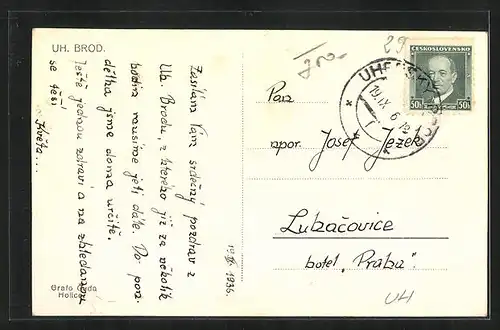 UH. BROD.
Zasílám Vám srdečný pozdrav z
Uh. Brodu, z kterého již za několik
hodin musíme jeti dále. Do pon.
dělka jsme doma určitě.
Ještě jednou zdraví a na shledanou
se těší
19/IX 1936.
Grafo Čuda
Holice
29
ČESKOSLOVENSKO
50h 50h
19.IX.36
Pan
npor. Josef Ježek
Luhačovice
hotel „Praha".
UH